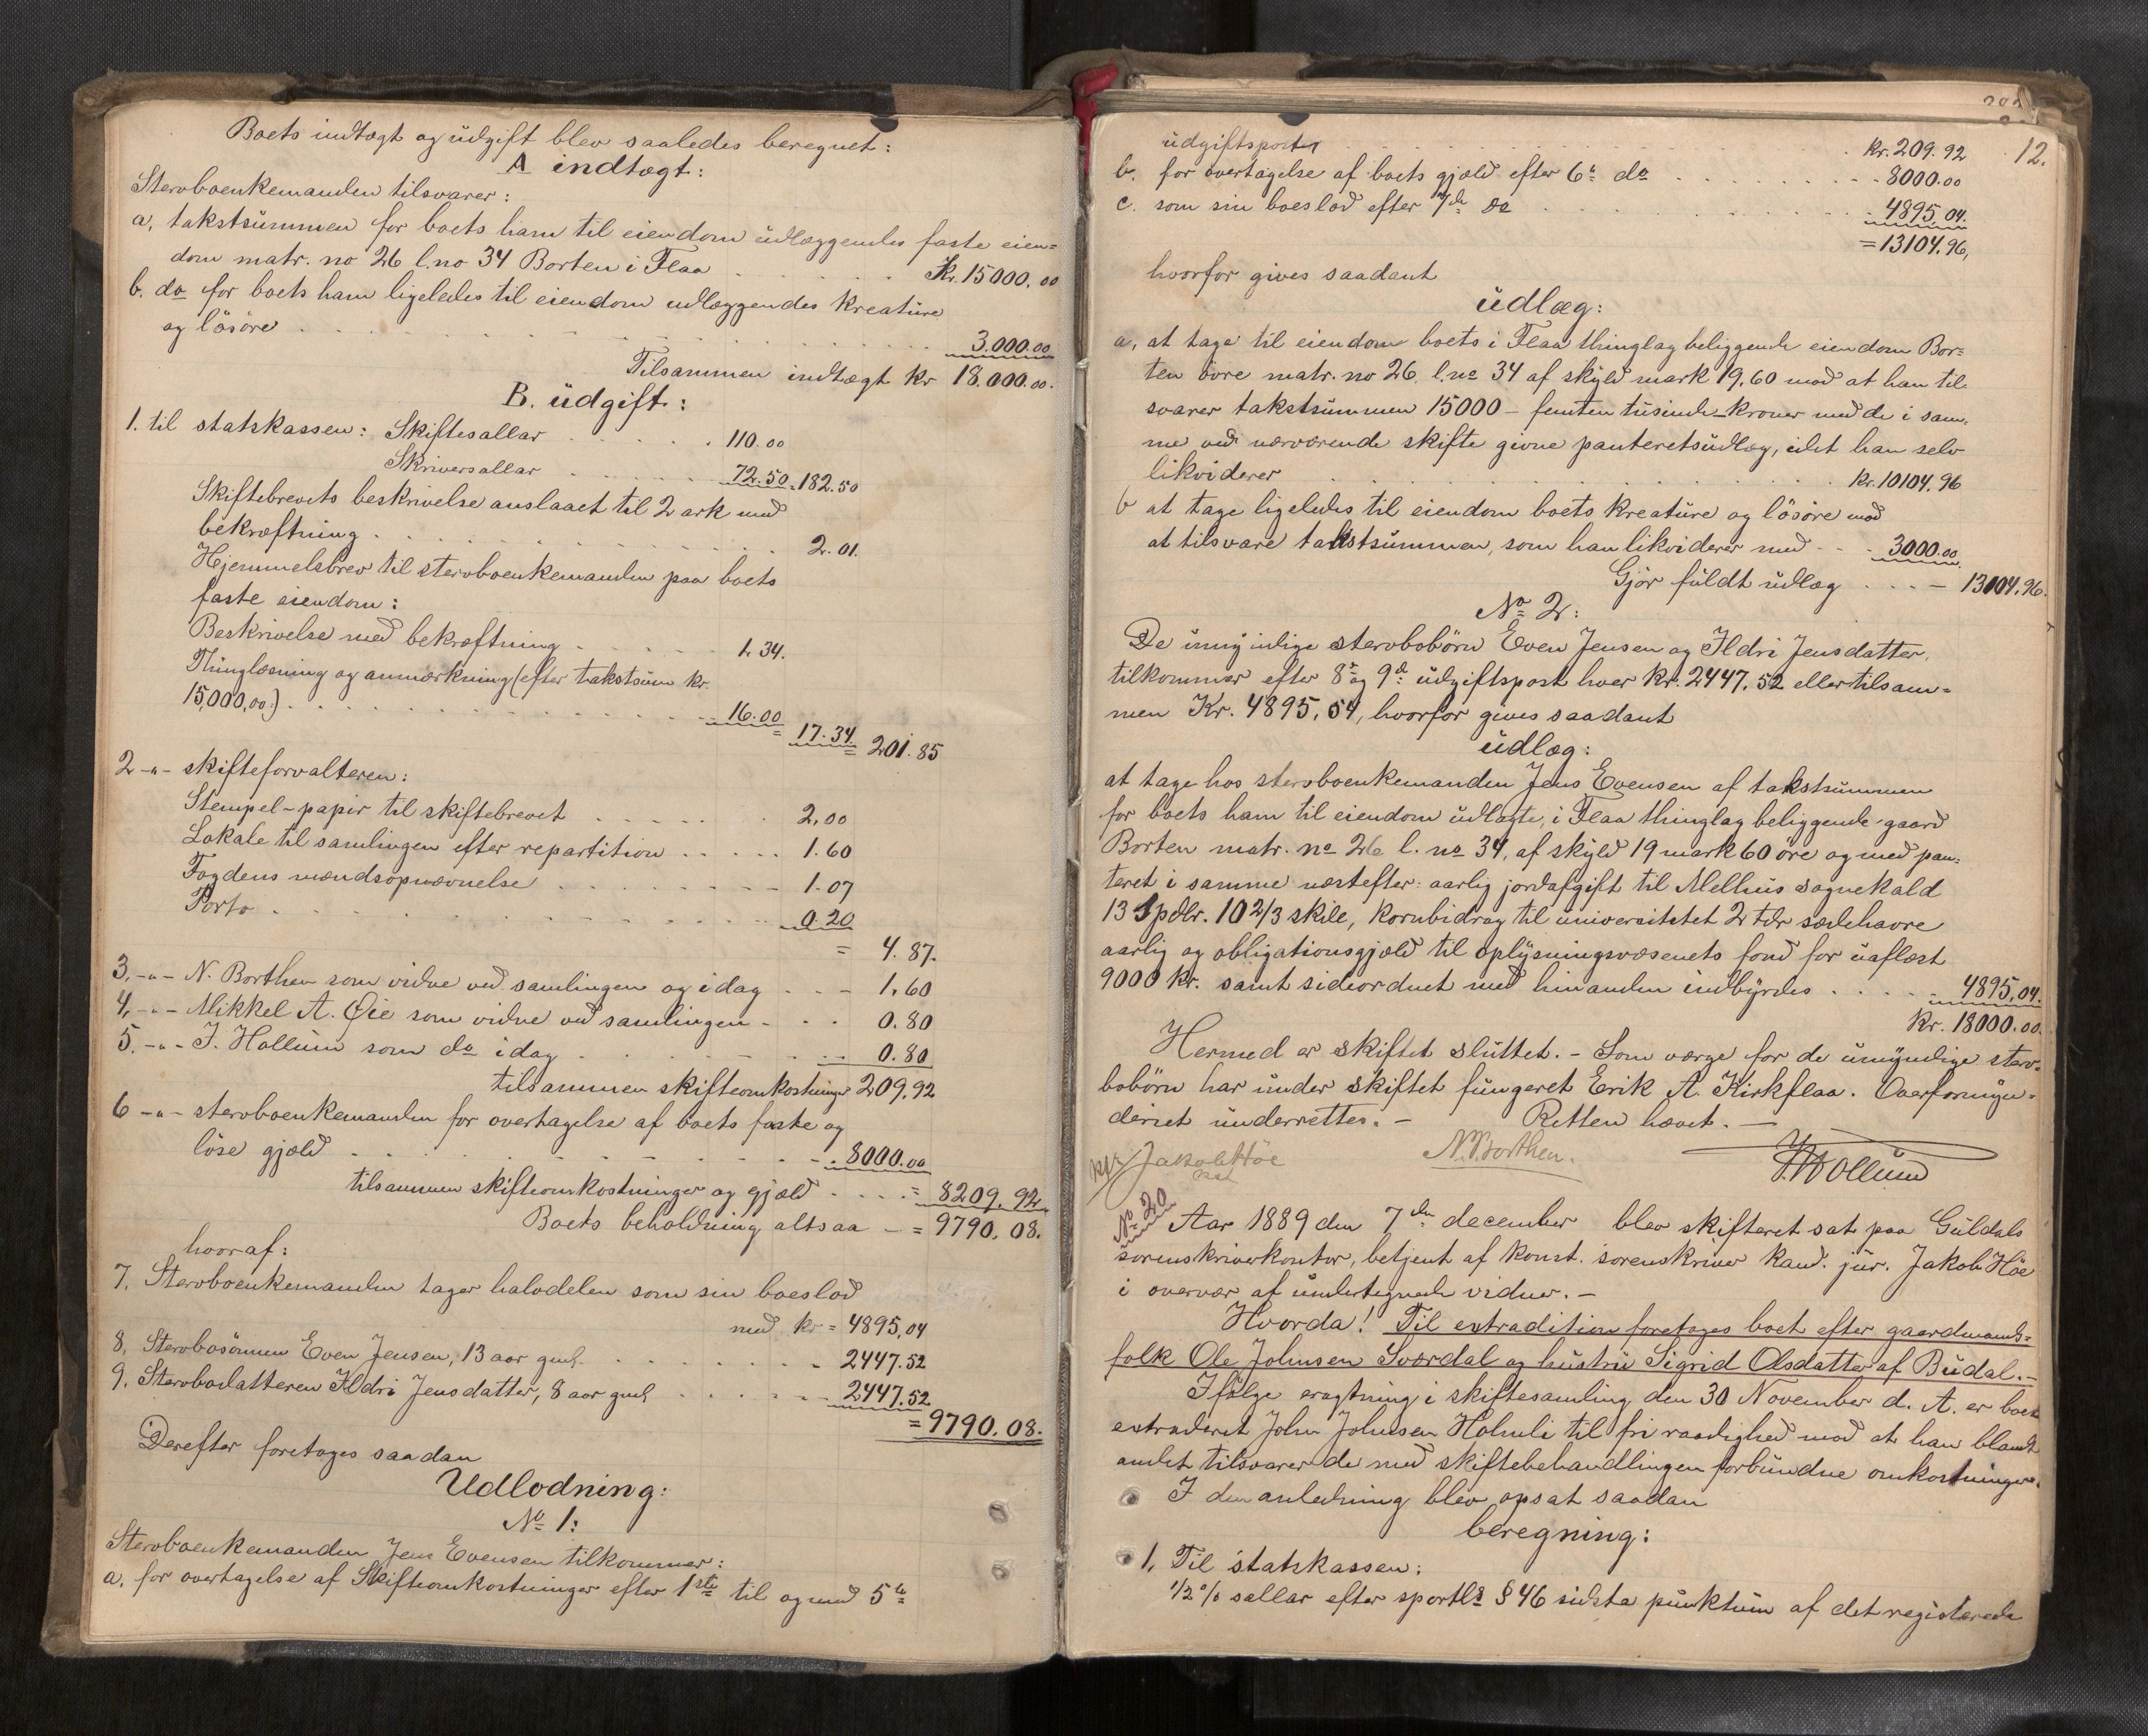 Boets indtægt og udgift blev saaledes beregnet:
A indtægt:
Stervboenkemanden tilsvarer:
a, takstsummen for boets ham til eiendom udlæggendes faste eien=
dom matr. no 26 l.no 34 Borten i Flaa . . . . . . Kr. 15000,00
b. do for boets ham ligeledes til eiendom udlæggendes kreature
og lösöre . . . . . . 3.000.00
Tilsammen indtægt Kr 18.000.00.
B. udgift:
1. til statskassen: Skiftesallar . . . . . 110.00
Skriversallar . . . . . 72.50 . 182.50
Skiftebrevets beskrivelse anslaaet til 2 ark med
bekræftning . . . . . . 2.01.
Hjemmelsbrev til stervboenkemanden paa boets
faste eiendom:
Beskrivelse med bekræftning . . . . 1.34.
Thinglæsning og anmærkning (efter takstsum kr.
15,000,00:) . . . . . . 16.00
17.34 201.85
2 -"- skifteforvalteren:
Stempel-papir til skiftebrevet . . . . . 2,00
Lokale til samlingen efter repartition . . . . 1.60
Fogdens mændsopnævnelse . . . . . . 1.07
Porto . . . . . . 0.20
= 4.87.
3. -"- N. Borthen som vidne ved samlingen og idag . . . 1,60
4, -"- Mikkel A. Øie som vidne ved samlingen - . . 0.80
5. -"- J. Hollum som do idag . . . . . 0.80
tilsammen skifteomkostninger 209,92
6 -"- stervboenkemanden for overtagelse af boets faste og
löse gjæld . . . . . . 8000.00
tilsammen skifteomkostninger og gjæld . . . . = 8209.92
Boets beholdning altsaa - = 9790.08.
hvoraf:
7. Stervboenkemanden tager halvdelen som sin boeslod
med kr = 4895,04
8, Stervbosönnen Even Jensen, 13 aar gml. . . . . . 2447.52
9. Stervbodatteren Ildri Jensdatter, 8 aar gml . . . . . 2447.52
= 9790.08.
Derefter foretages saadan
Udlodning:
No 1:
Stervboenkemanden Jens Evensen tilkommer:
a. for overtagelse af Skifteomkostninger efter 1ste til og med 5te
12.
udgiftsposter . . . . . . Kr. 209.92
b. for overtagelse af boets gjæld efter 6te do . . . . . 8000.00
c. som sin boeslod efter 7de do . . . . . . 4895,04.
= 13104.96,
hvorfor gives saadant
udlæg:
a, at tage til eiendom boets i Flaa thinglag beliggende eiendom Bor=
ten övre matr. no 26. l. no 34 af skyld mark 19,60 mod at han til=
svarer takstsummen 15000 - femten tusinde - kroner med de i sam=
me ved nærværende skifte givne panteretsudlæg, idet han selv
likviderer . . . . . . Kr. 10104.96
b at tage ligeledes til eiendom boets kreature og lösöre mod
at tilsvare takstsummen, som han likviderer med - . . 3000.00.
Gjör fuldt udlæg . . . - 13104.96.
No 2:
De umyndige stervbobörn Even Jensen og Ildri Jensdatter,
tilkommer efter 8de og 9de udgiftspost hver Kr. 2447,52 eller tilsam=
men Kr. 4895,04, hvorfor gives saadant
udlæg:
at tage hos stervboenkemanden Jens Evensen af takstsummen
for boets ham til eiendom udlagte, i Flaa thinglag beliggende gaard
Borten matr. no 26 l. no 34, af skyld 19 mark 60 öre og med pan=
teret i samme næstefter: aarlig jordafgift til Melhus sognekald
13 Spdlr. 10 2/3 skill, kornbidrag til universitetet 2 tdr sædehavre
aarlig og obligationsgjæld til oplysningsvæsenets fond for uaflæst
9000 kr. samt sideordnet med hinanden indbyrdes . . . . 4895,04.
Kr. 18000.00.
Hermed er skiftet sluttet. - Som værge for de umyndige sterv=
bobörn har under skiftet fungeret Erik A. Kirkflaa. Overformyn=
deriet underrettes. - Retten hævet. -
Jakob Höe N. Borthen. J. Hollum
kst
No 20
Aar 1889 den 7de december blev skifteret sat paa Guldals
sorenskriverkontor, betjent af konst. sorenskriver kand. jur. Jakob Höe
i overvær af undertegnede vidner. -
Hvorda! Til extradition foretoges boet efter gaardmands=
folk Ole Johnsen Sværdal og hustru Sigrid Olsdatter af Budal. -
Ifölge eragtning i skiftesamling den 30 November d. A. er boet
extraderet John Johnsen Holmli til fri raadighed mod at han blandt
andet tilsvarer de med skiftebehandlingen forbundne omkostninger.
I den anledning blev opsat saadan
beregning:
1, Til statskassen:
1/2 % sallar efter sportls § 46 sidste punktum af det registrerede